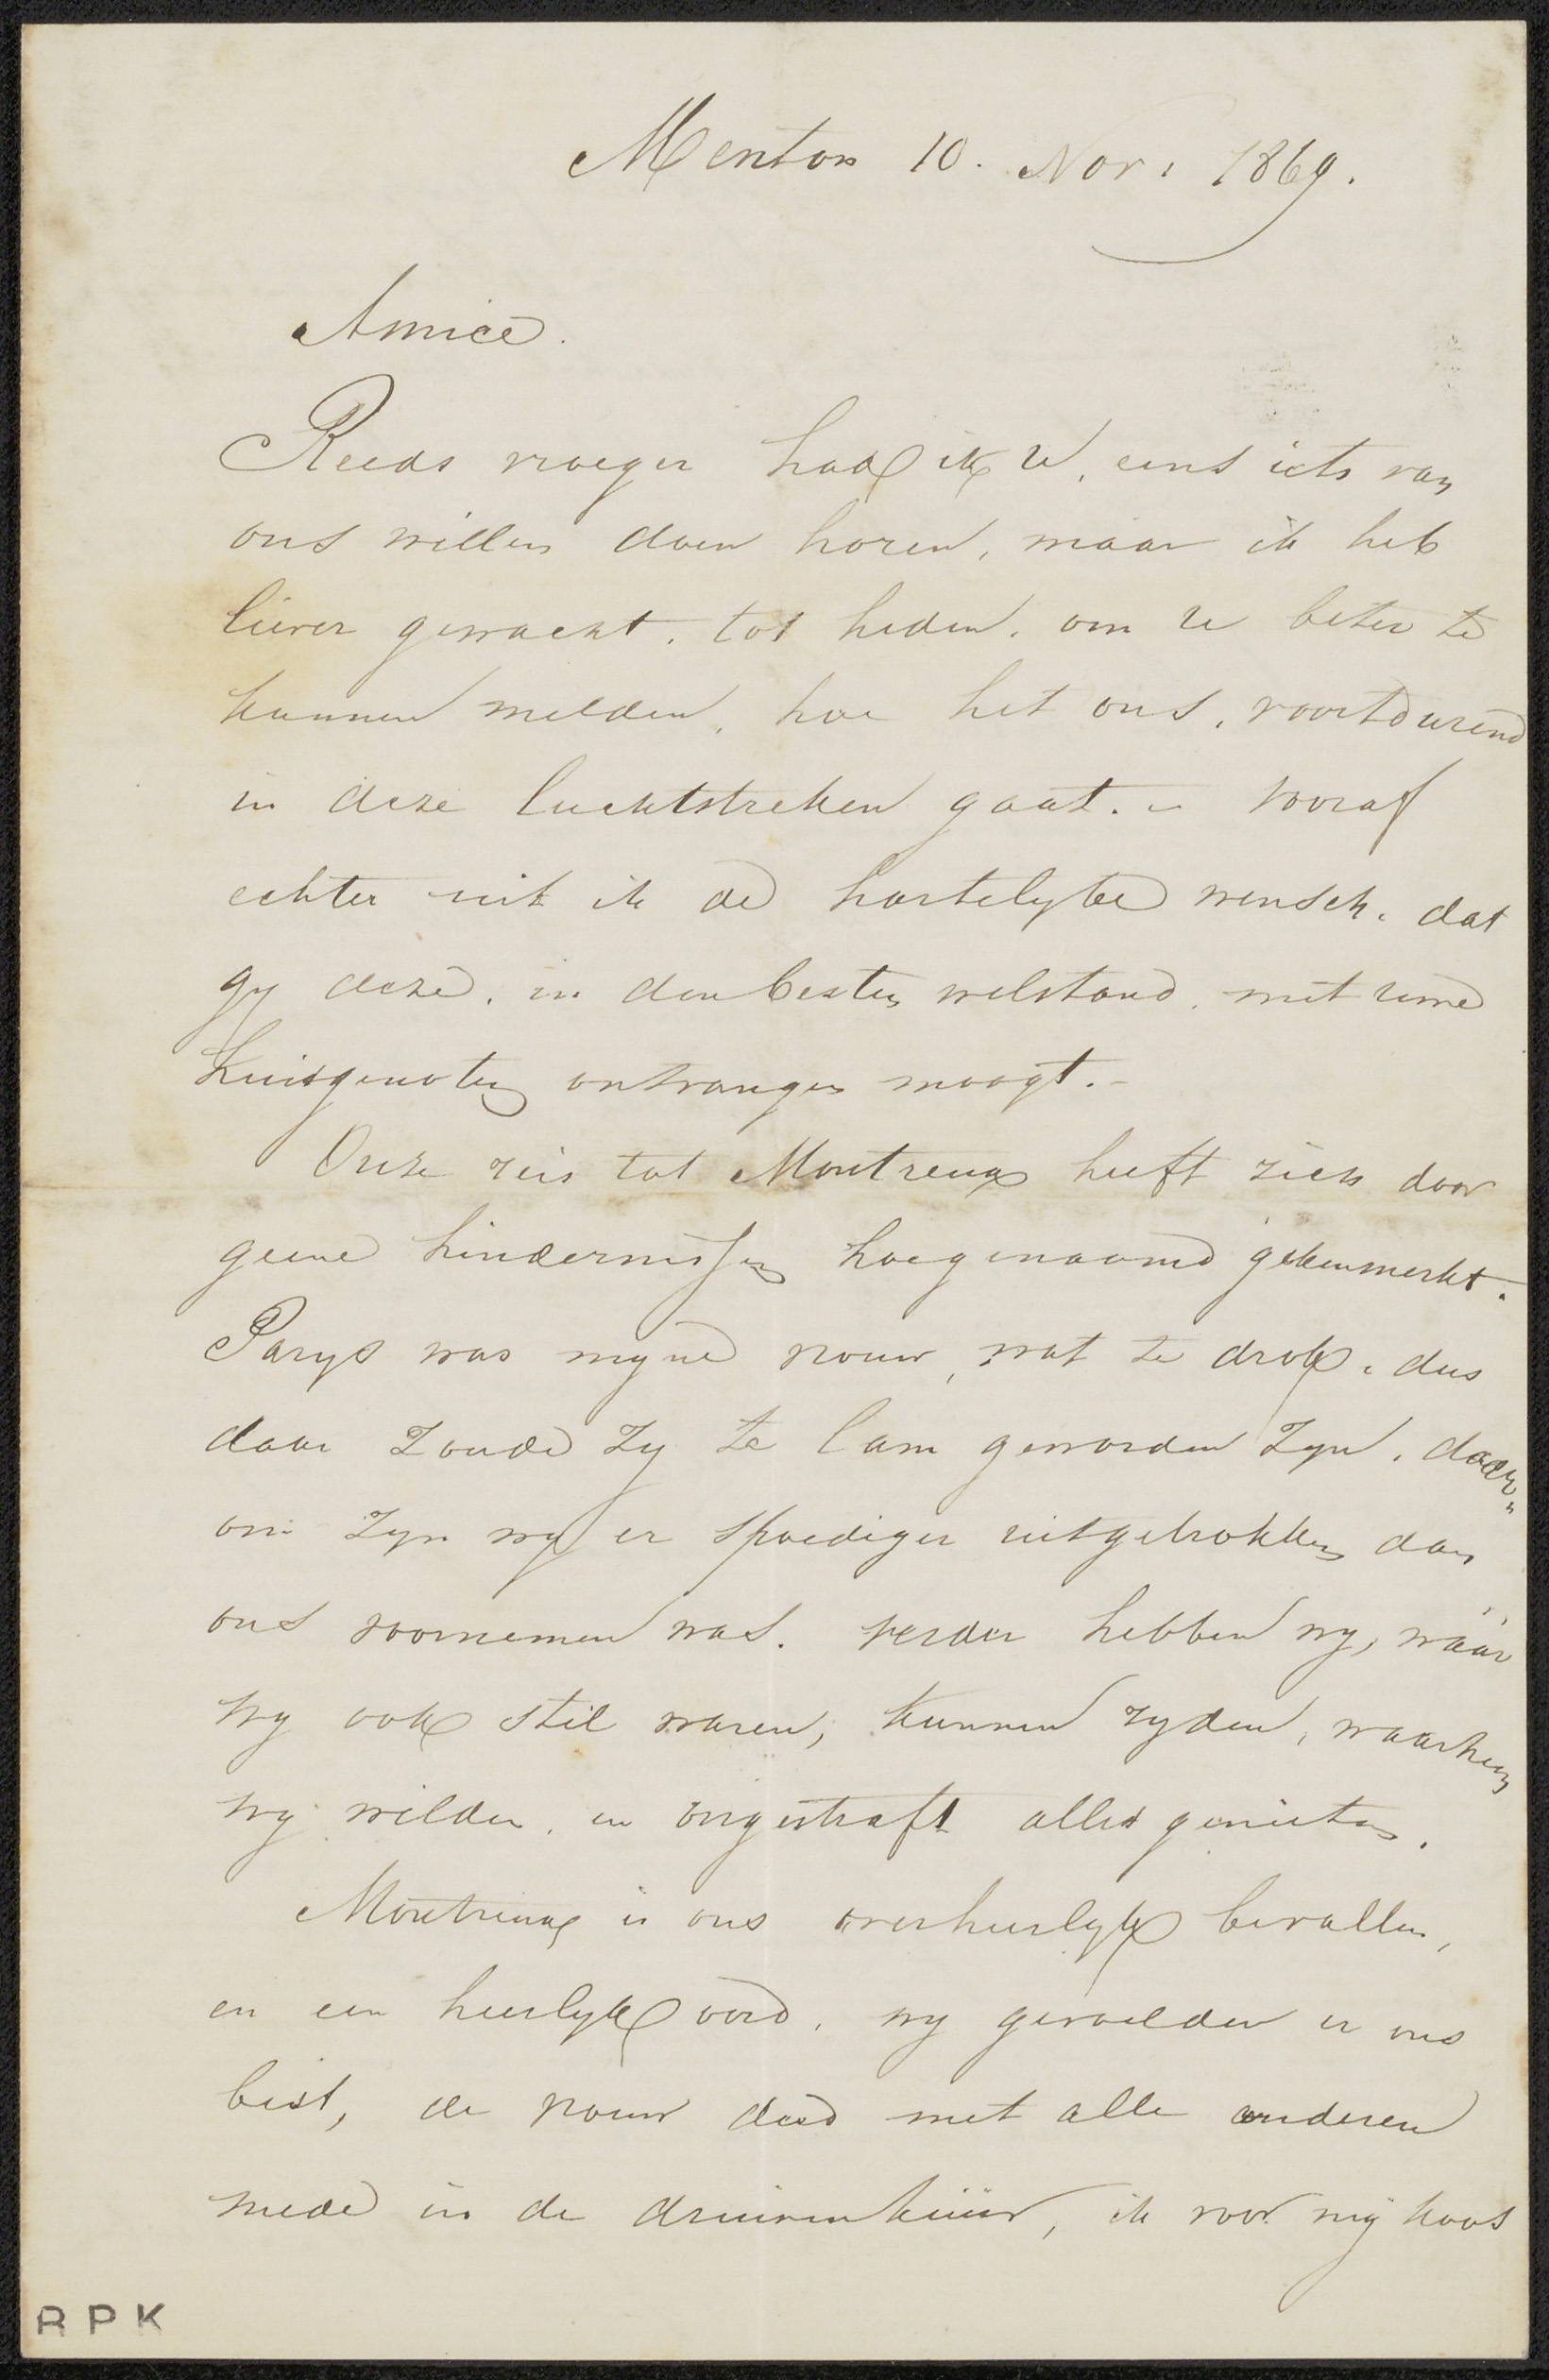 Menton 10. Nov. 1869.
Amice.
Reeds vroeger had ik U, eens iets van
ons willen doen horen, maar ik heb
liever gewacht. tot heden. om U beter te
kunnen melden, hoe het ons, voortdurend
in deze luchtstreken gaat. - vooraf
echter uit ik de hartelyke wensch. dat
gy deze. in den besten welstand. met uwe
huisgenoten ontvangen moogt. -
Onze reis tot Montreux heeft zich door
geene hindernissen hoegenaamd gekenmerkt.
Parys was myne vrouw, wat te drok. dus
daar zoude zy te lam geworden zyn. daar„
om zyn wy er spoediger uitgetrokken dan
ons voornemen was. verder hebben wy, waar
wy ook stil waren, kunnen ryden, waarheen
wy wilden. en ongestraft alles genieten.
Montreux is ons overheerlyk bevallen,
en een heerlyk oord. wy gevoelden er ons
best, de vrouw deed met alle anderen
mede in de druivenkuur, ik voor my koos
RPK